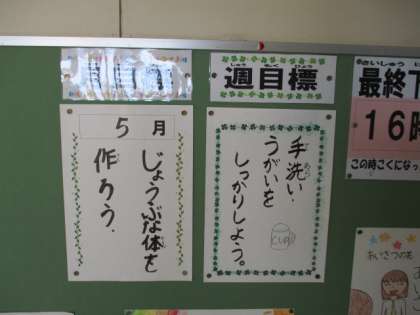 5月
じょうぶな体を
作ろう。
しゅうもくひょう
週目標
手洗い・
うがいを
しっかりしよう。
さいしゅう
最終下
16時
この時こくになっ
あいさつの花